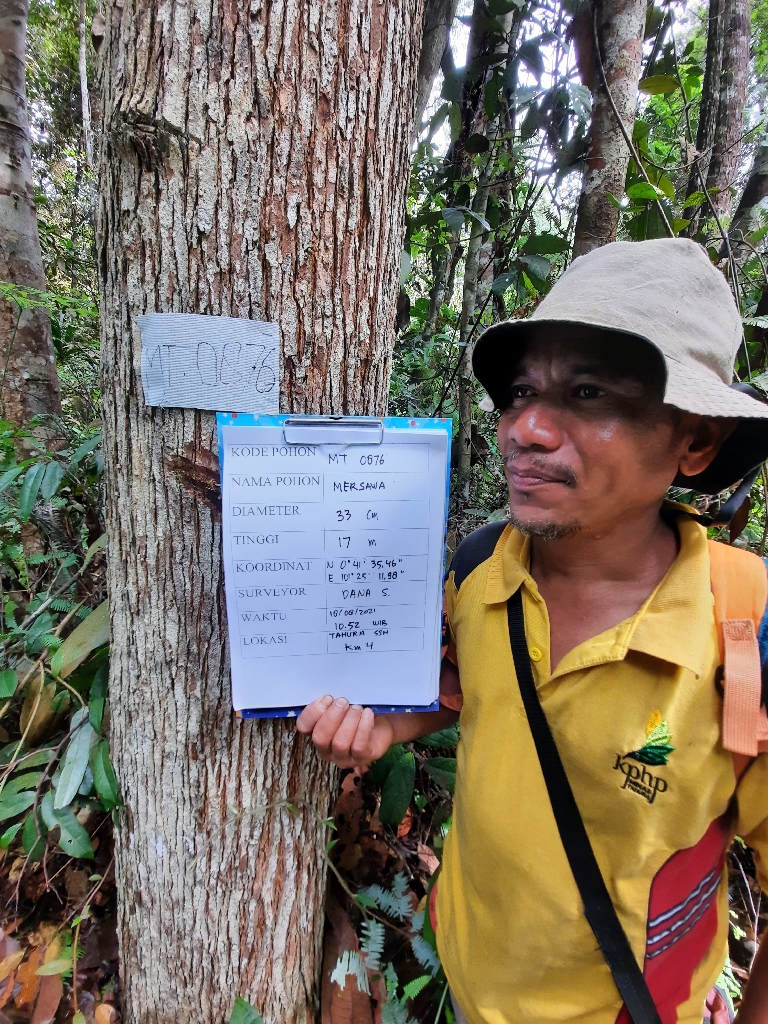 MT. 0876
KODE POHON MT 0876
NAMA POHON MERSAWA
DIAMETER 33 Cm
TINGGI 17 m
KOORDINAT N 0° 41' 35,46"
E 101° 25' 11,98"
SURVEYOR DANA S.
WAKTU 18/08/2021
10.52 WIB
LOKASI TAHURA SSH
Km 4
kphp
MINAS TAHURA